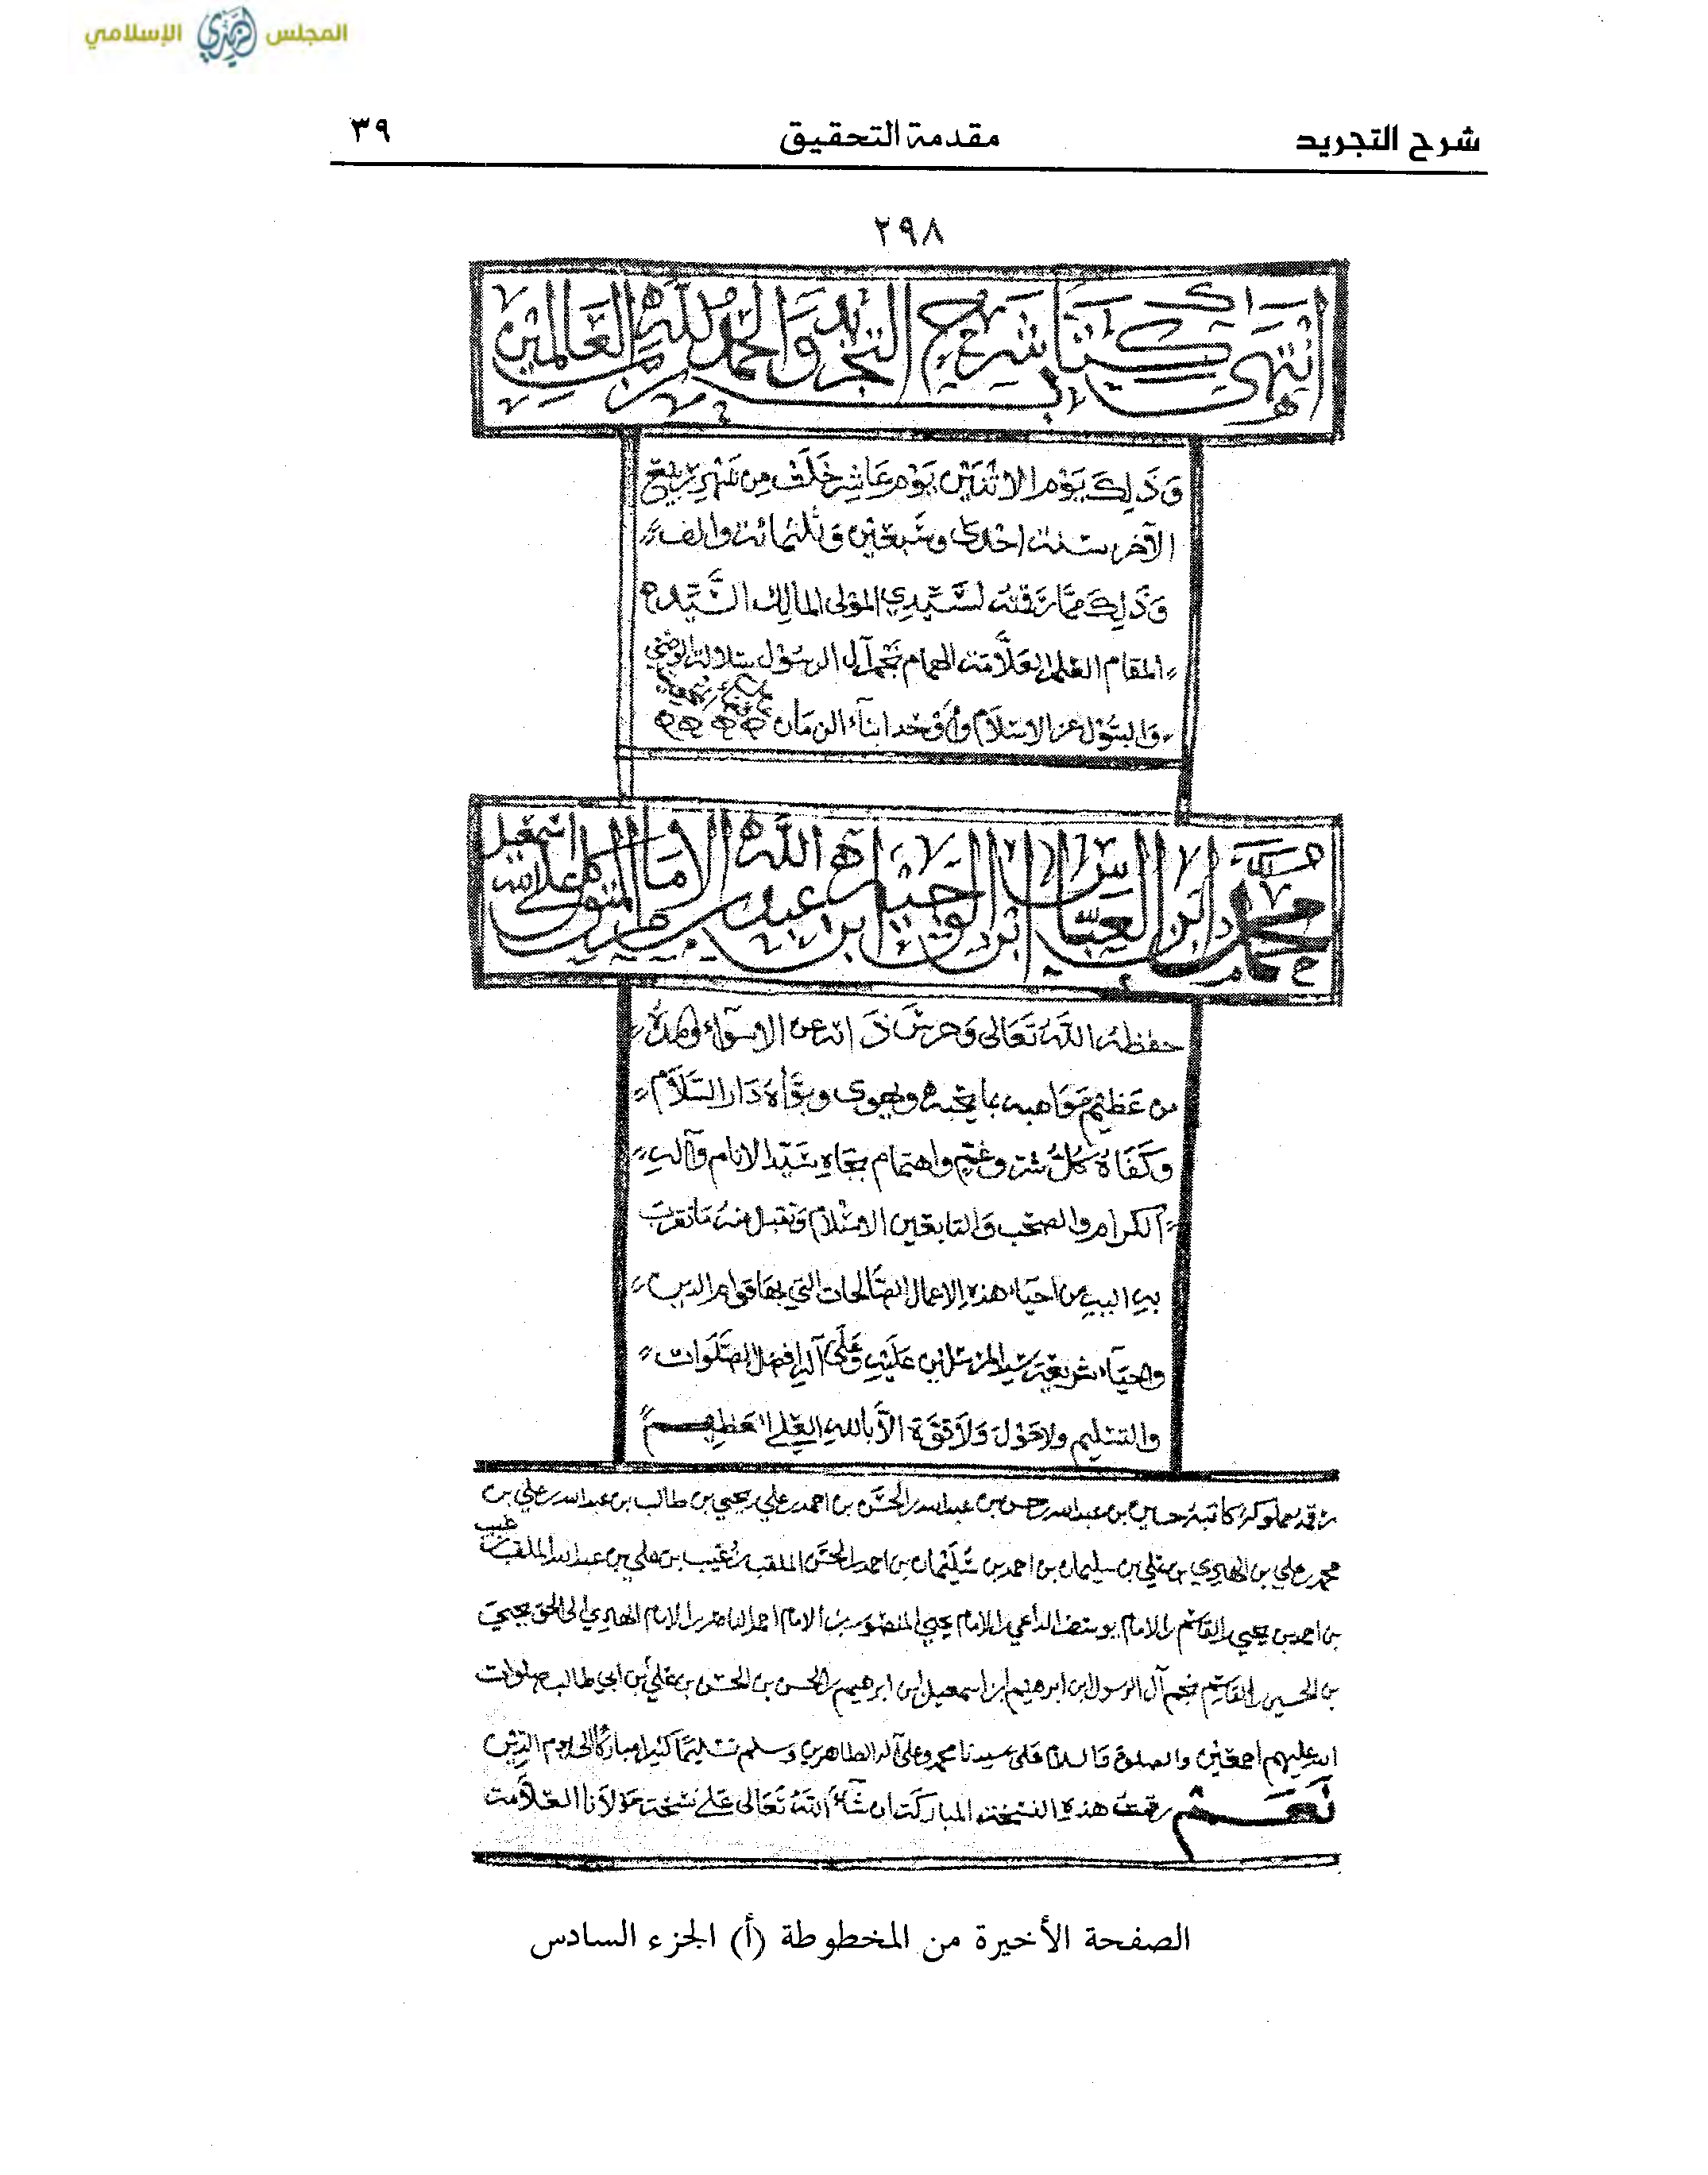 المجلس الزيدي الإسلامي
شرح التجريد مقدمة التحقيق ٣٩
٢٩٨
انتهى كتاب شرح التجريد والحمد لله رب العالمين
وَذَلِكَ يَوْم الاثنَيْن يَوْم عَاشِر خَلَتْ مِن شَهْرِ رَبيْع
الآخر سنة احْدَى وسَبعيْن وَثلثمائة والف
وَذَلِكَ ممَّا رَقمته لسَيِّدِي المَوْلى المالِك السَّيِّد
المقام العَلم العَلاَّمة الهمام نَجْم آل الرسُوْل سلالة الوَصِي
وَالبتُوْل عز الاسْلاَم وأوْحَد ابنآء الزمَان
محمد ابن العباس ابن الوجيه ابن عبد الله الامام المتوكل على الله اسمعيل
حفظهُ اللهُ تَعَالى وَحَرسَ ذَاته عن الاسوآء
من عَظيْم مَوَاهبه ما يحبه ويهوى وبوَّأهُ دَار السَّلاَم
وكَفَاهُ كُلَّ شر وغَم واهتمام بجَاهِ سَيِّد الانام وآله
الكرام والصحْب وَالتابعين الاعْلام وَتقبل منهُ مَا تقرب
به اليه من احيَاء هذه الاعمال الصَّالحات التي بها قوام الدين
واحيَآء شريعَة سَيد المرسَلين عَلَيْهِ وَعَلَى آله افضل الصَّلَوات
والتسْليم ولا حَوْلَ وَلاَ قوَّة الاَّ بالله العَلي العَظيم
رقمه مملوكه كاتبهُ حسين بن عبدالله بن حسن بن عبدالله بن الحسَن بن احمد بن علي بن يحيى بن طالب بن عبدالله بن علي بن
محمد بن علي بن الهادي بن علي بن سليمان بن احمد بن سُلَيْمان بن احمد بن الحسَن الملقب بن علي بن عبدالله الملقب
بن احمد بن يحيى بن القاسم بن الامام يوسف الداعي بن الامام يحيى المنصور بن الامام احمد الناصر بن الامام الهادي الى الحق يحيى
بن الحسين بن القاسم نجم آل الرسول ابن ابرهيم بن اسمعيل ابن ابرهيم بن الحسن بن الحسن بن علي بن ابي طالب صلوات
الله عليهم اجمعين والصلوة والسلام على سيدنا محمد وعلى آله الطاهرين وسلم تسليمًا كثيرا مباركًا الى يوم الدين
نَعَم رقمتُ هَذهِ النسْخة المباركة ان شَآءَ اللهُ تَعَالى عَلَى نسخة مَوْلاَنا العَلاَّمة
الصفحة الأخيرة من المخطوطة (أ) الجزء السادس